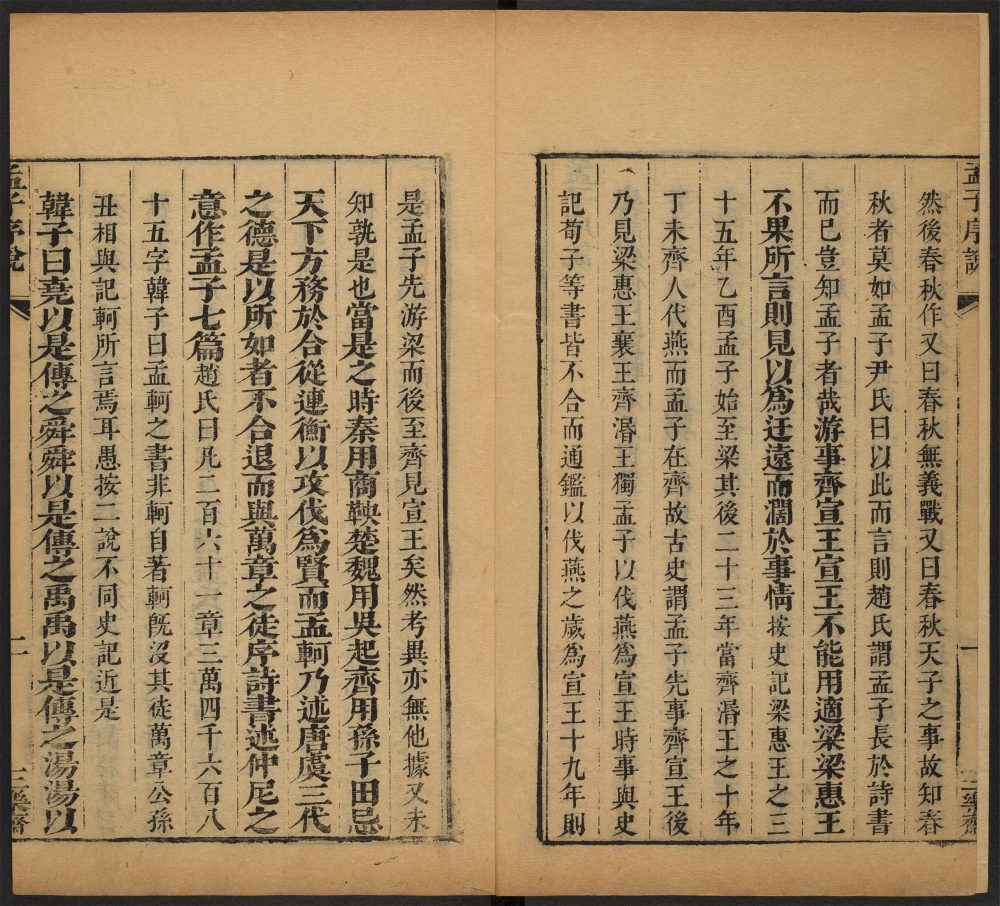 孟子序說
一
三樂齋
然後春秋作又曰春秋無義戰又曰春秋天子之事故知春
秋者莫如孟子尹氏曰以此而言則趙氏謂孟子長於詩書
而已豈知孟子者哉游事齊宣王宣王不能用適梁梁惠王
不果所言則見以為迂遠而濶於事情按史記梁惠王之三
十五年乙酉孟子始至梁其後二十三年當齊湣王之十年
丁未齊人伐燕而孟子在齊故古史謂孟子先事齊宣王後
乃見梁惠王襄王齊湣王獨孟子以伐燕為宣王時事與史
記荀子等書皆不合而通鑑以伐燕之歲為宣王十九年則
是孟子先游梁而後至齊見宣王矣然考異亦無他據又未
知孰是也當是之時秦用商鞅楚魏用吳起齊用孫子田忌
天下方務於合從連衡以攻伐為賢而孟軻乃述唐虞三代
之德是以所如者不合退而與萬章之徒序詩書述仲尼之
意作孟子七篇趙氏曰凡二百六十一章三萬四千六百八
十五字韓子曰孟軻之書非軻自著軻旣沒其徒萬章公孫
丑相與記軻所言焉耳愚按二說不同史記近是
韓子曰堯以是傳之舜舜以是傳之禹禹以是傳之湯湯以
孟子序說
二
三樂齋